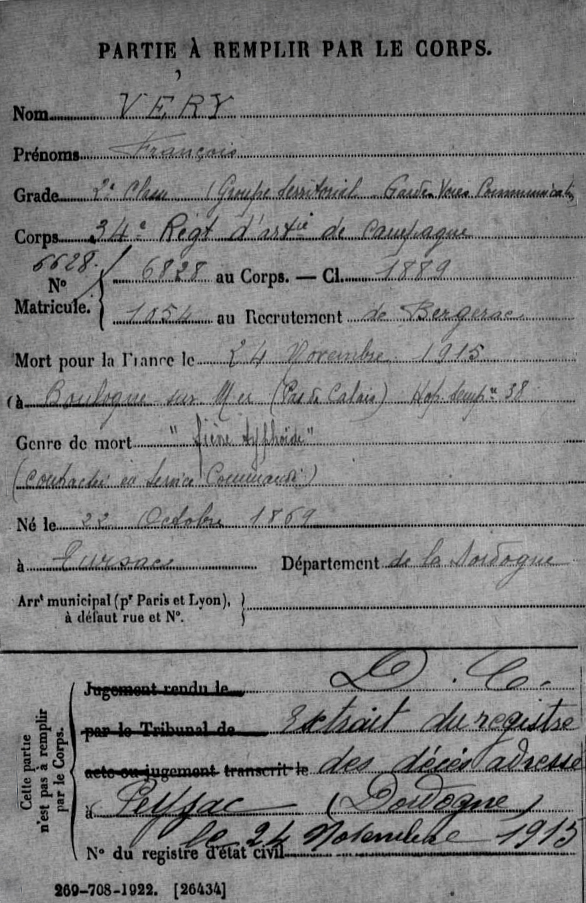 PARTIE À REMPLIR PAR LE CORPS.
Nom VÉRY
Prénoms François
Grade 2e Classe (Groupe territorial Garde Voies Communicat)
Corps 34e Regt d'artie de Campagne
6628.
N° Matricule. 6828 au Corps. — Cl. 1889
1054 au Recrutement de Bergerac
Mort pour la France le 24 Novembre 1915
(à Boulogne sur Mer (Pas de Calais) Hop. temp. 38
Genre de mort "fièvre typhoïde"
(contractée en Service Commandé)
Né le 22 Octobre 1869
à Tursac Département de la Dordogne
Arrt municipal (pr Paris et Lyon),
à défaut rue et N°.
Cette partie n'est pas à remplir par le Corps.
Jugement rendu le D. C.
par le Tribunal de Extrait du registre
acte ou jugement transcrit le des décès adressé
à Peyzac (Dordogne)
le 24 Novembre 1915
N° du registre d'état civil
269-708-1922. [26434]